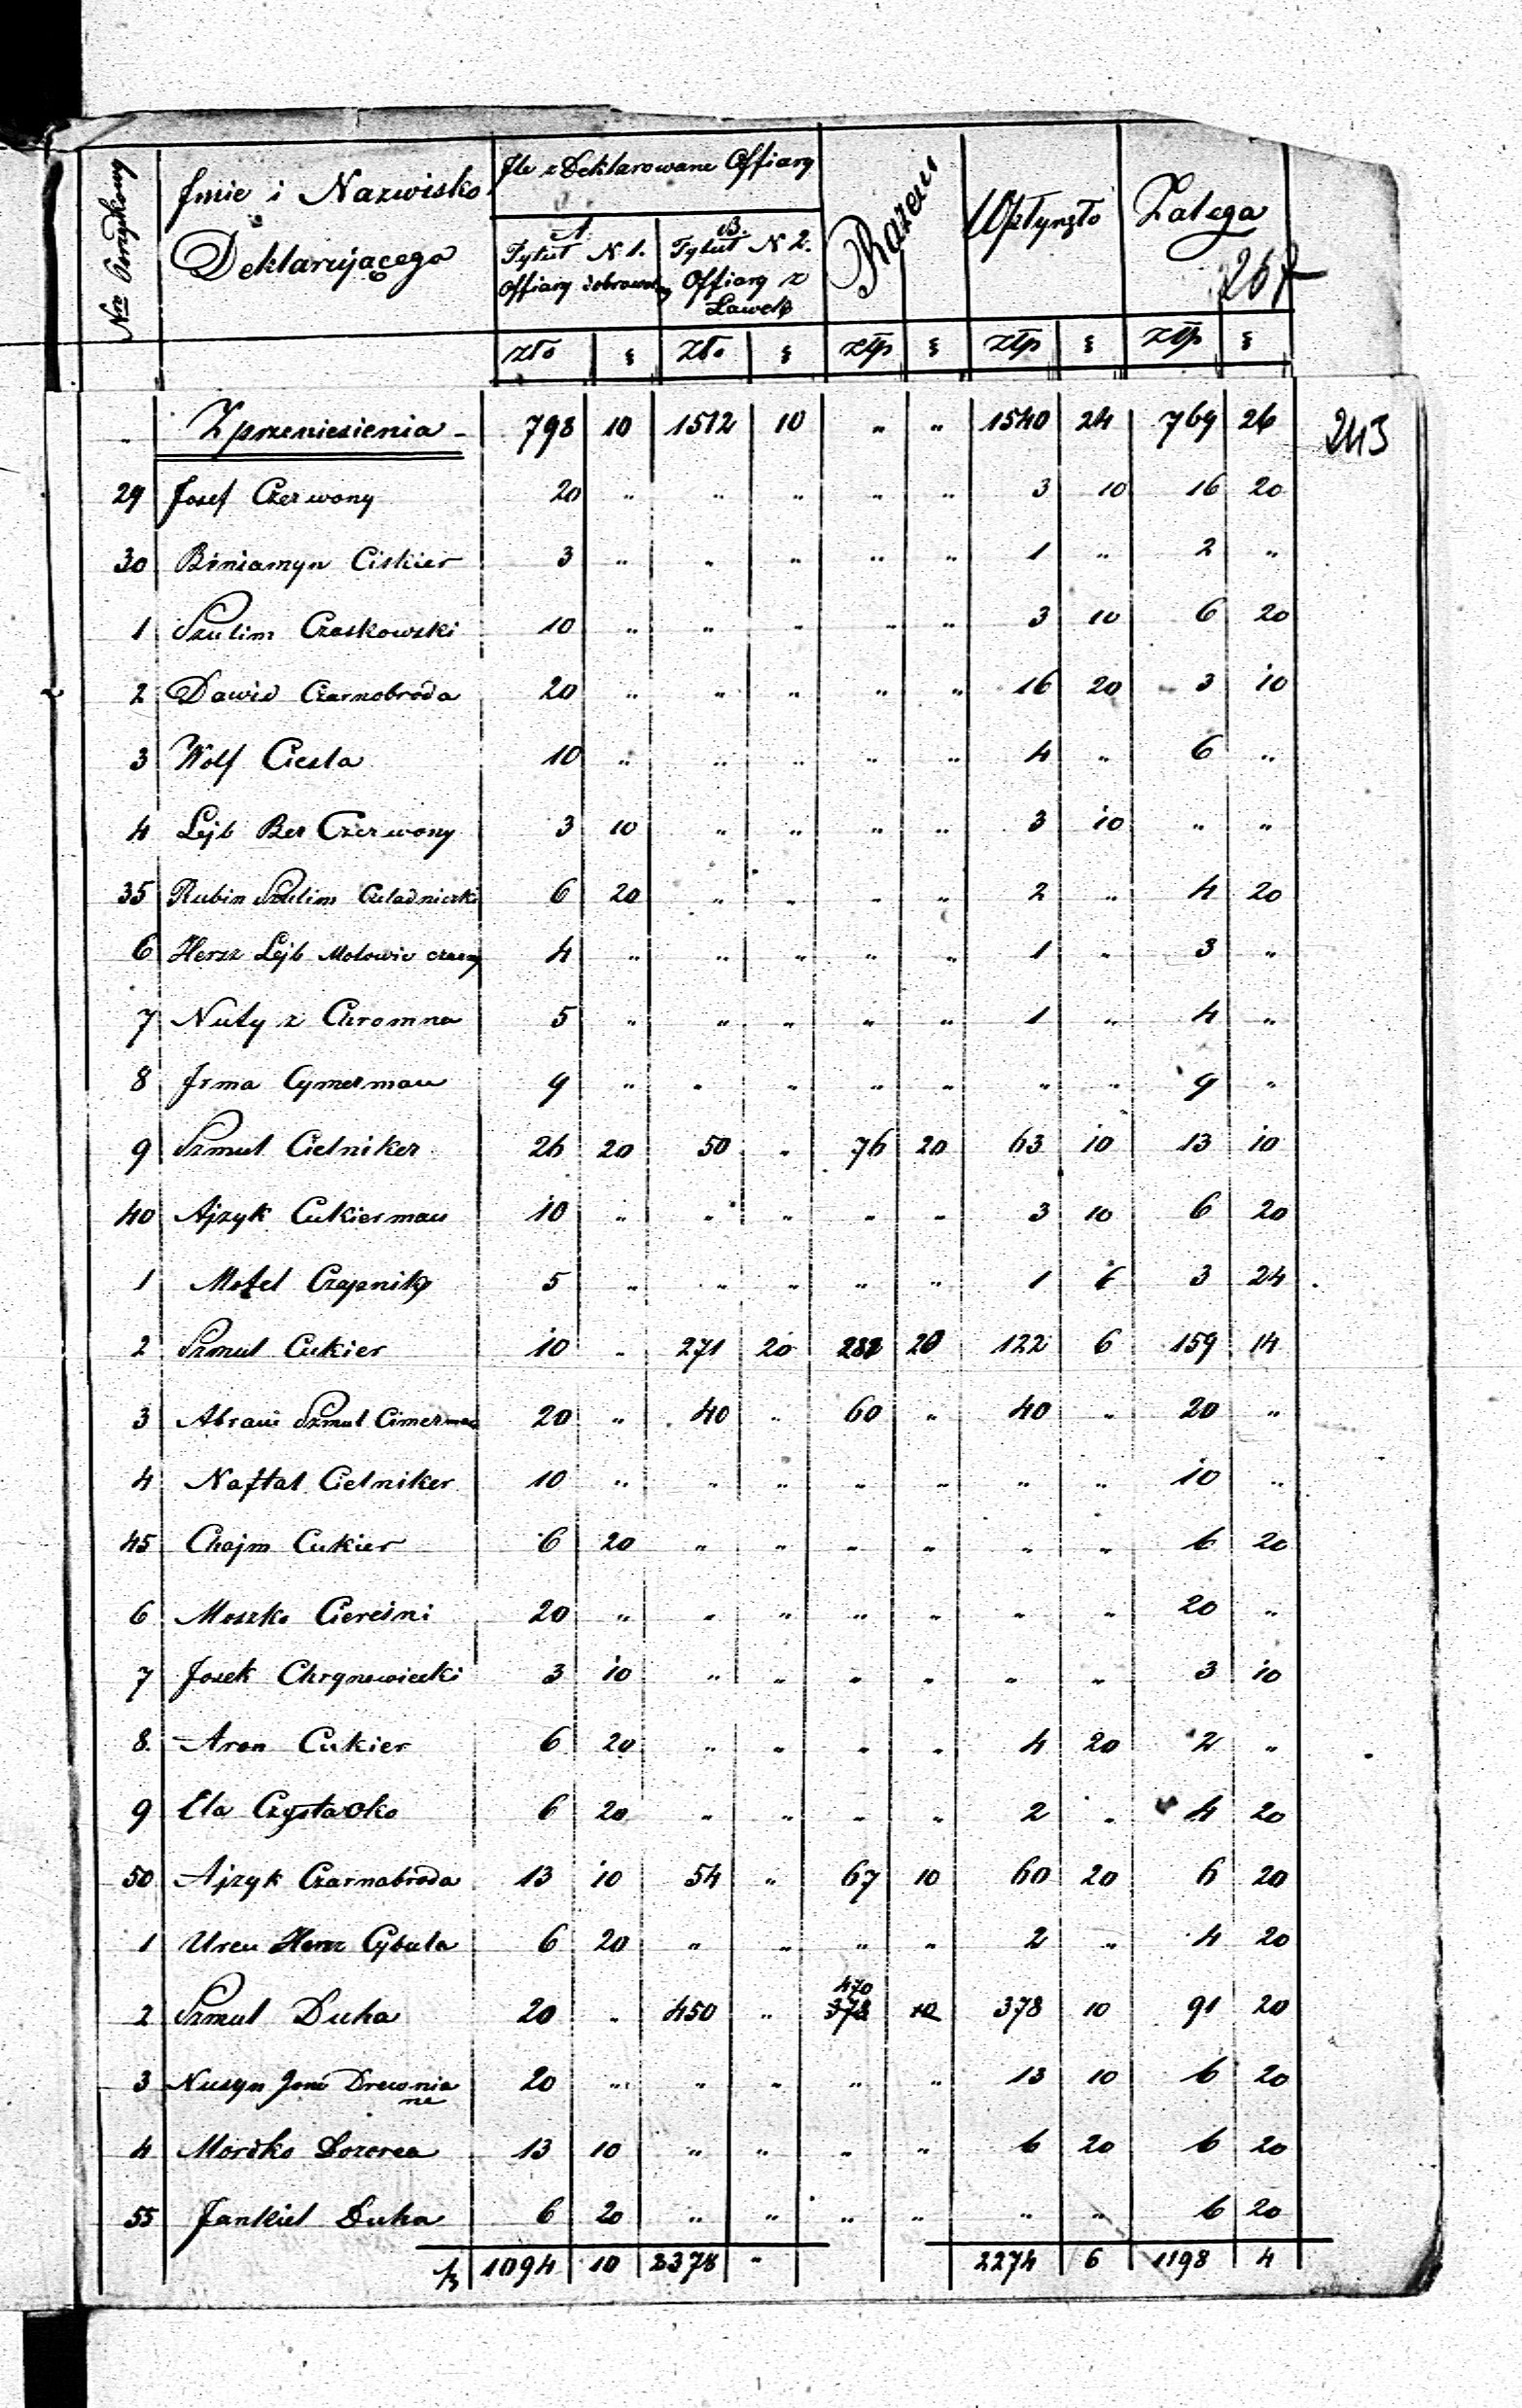 Nro Porządkowy
Jmie i Nazwisko
Deklarującego
Jle zDeklarowane Offiary
A. Tytuł N 1. Offiary dobrowolny
B. Tytuł N 2. Offiary z Ławek
Razem
Wpłynęło
Zalega
267
złp g złp g złp g złp g złp g
" Z przeniesienia - 798 10 1512 10 " " 1540 24 769 26
243
29 Josef Czerwony 20 " " " " " 3 10 16 20
30 Biniamyn Ciskier 3 " " " " " 1 " 2 "
1 Szulim Czaskowski 10 " " " " " 3 10 6 20
2 Dawid Czarnobroda 20 " " " " " 16 20 3 10
3 Wolf Ciesla 10 " " " " " 4 " 6 "
4 Lejb Ber Czerwony 3 10 " " " " 3 10 " "
35 Rubin Szulim Czeladnicki 6 20 " " " " 2 " 4 20
6 Hersz Lejb Motowic czarny 4 " " " " " 1 " 3 "
7 Nuty z Chromna 5 " " " " " 1 " 4 "
8 Jrma Cymerman 9 " " " " " " " 9 "
9 Szmul Cielniker 26 20 50 " 76 20 63 10 13 10
40 Ajzyk Cukierman 10 " " " " " 3 10 6 20
1 Motel Czapnik 5 " " " " " 1 6 3 24
2 Szmul Cukier 10 " 271 20 281 20 122 6 159 14
3 Abram Szmul Cimerman 20 " 40 " 60 " 40 " 20 "
4 Naftal Cielniker 10 " " " " " " " 10 "
45 Chajm Cukier 6 20 " " " " " " 6 20
6 Moszko Cieresni 20 " " " " " " " 20 "
7 Josek Chrynowiecki 3 10 " " " " " " 3 10
8. Aron Cukier 6 20 " " " " 4 20 2 "
9 Ela Czystaoko 6 20 " " " " 2 " 4 20
50 Ajzyk Czarnabroda 13 10 54 " 67 10 60 20 6 20
1 Uren Hersz Cybula 6 20 " " " " 2 " 4 20
470
2 Szmul Duha 20 " 450 " 378 10 378 10 91 20
3 Nusyn Jone Drewnia 20 " " " " " 13 10 6 20
ne
4 Mordko Dozorca 13 10 " " " " 6 20 6 20
55 Jankiel Duha 6 20 " " " " " " 6 20
1094 10 2378 " 2274 6 1198 4